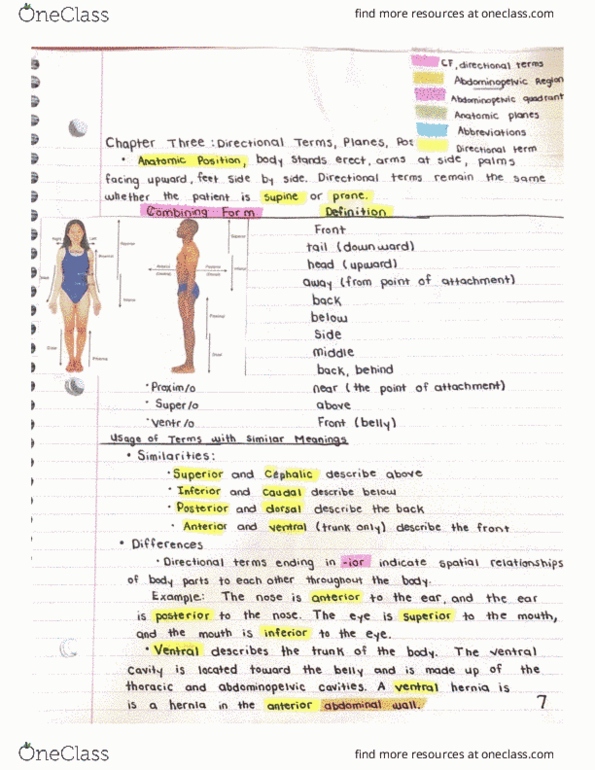 OneClass
find more resources at oneclass.com
CF, directional terms
Abdominopelvic Region
Abdominopelvic quadrant
Anatomic planes
Abbreviations
Directional term
Chapter Three : Directional Terms, Planes, Pos
• Anatomic Position, body stands erect, arms at side, palms
facing upward, feet side by side. Directional terms remain the same
whether the patient is supine or prone.
Combining Form Definition
Front
tail (downward)
head (upward)
away (from point of attachment)
back
below
Side
middle
back, behind
• Proxim/o near (the point of attachment)
• Super/o above
• Ventr/o Front (belly)
Usage of Terms with Similar Meanings
• Similarities:
• Superior and Cephalic describe above
• Inferior and Caudal describe below
• Posterior and dorsal describe the back
• Anterior and ventral (trunk only) describe the front
• Differences
• Directional terms ending in -ior indicate spatial relationships
of body parts to each other throughout the body.
Example: The nose is anterior to the ear, and the ear
is posterior to the nose. The eye is superior to the mouth,
and the mouth is inferior to the eye.
• Ventral describes the trunk of the body. The ventral
cavity is located toward the belly and is made up of the
thoracic and abdominopelvic cavities. A ventral hernia is
is a hernia in the anterior abdominal wall.
7
OneClass
find more resources at oneclass.com